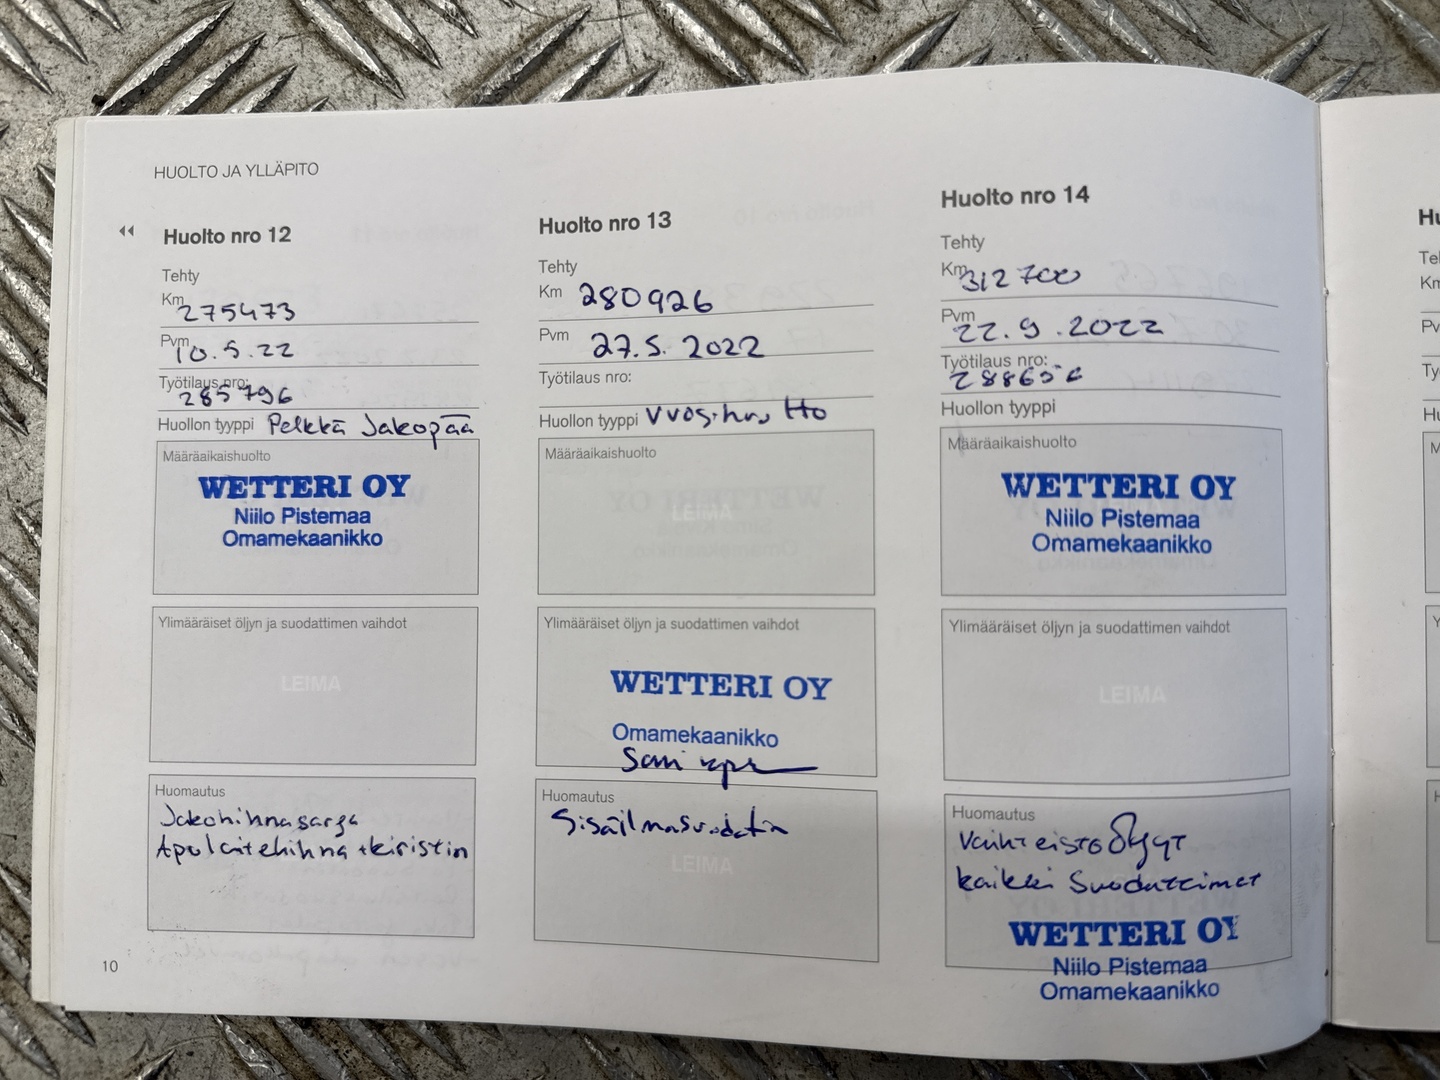 HUOLTO JA YLLÄPITO
Huolto nro 12
Tehty
Km 275473
Pvm 10.5.22
Työtilaus nro: 285796
Huollon tyyppi Pelkkä Jakopää
Määräaikaishuolto
WETTERI OY
Niilo Pistemaa
Omamekaanikko
Ylimääräiset öljyn ja suodattimen vaihdot
LEIMA
Huomautus
Jakohihnasarja
Apulaitehihna + kiristin
10
Huolto nro 13
Tehty
Km 280926
Pvm 27.5.2022
Työtilaus nro:
Huollon tyyppi Vuosihuolto
Määräaikaishuolto
LEIMA
Ylimääräiset öljyn ja suodattimen vaihdot
WETTERI OY
Omamekaanikko
Huomautus
Sisäilmasuodatin
LEIMA
Huolto nro 14
Tehty
Km 312700
Pvm 22.9.2022
Työtilaus nro: 288656
Huollon tyyppi
Määräaikaishuolto
WETTERI OY
Niilo Pistemaa
Omamekaanikko
Ylimääräiset öljyn ja suodattimen vaihdot
LEIMA
Huomautus
Vaihteistoöljyt
kaikki Suodattimet
WETTERI OY
Niilo Pistemaa
Omamekaanikko